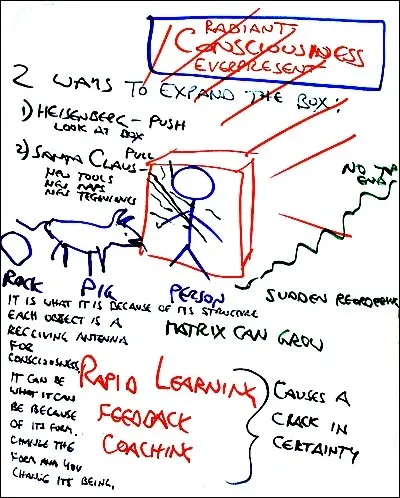 RADIANT
CONSCIOUSNESS
EVERPRESENT
2 WAYS TO EXPAND THE BOX:
1) HEISENBERG - PUSH
LOOK AT BOX
PULL
2) SANTA CLAUS -
NEW TOOLS
NEW MAPS
NEW TECHNIQUES
NO TOP
END
ROCK PIG PERSON
SUDDEN REORDERING
MATRIX CAN GROW
IT IS WHAT IT IS BECAUSE OF ITS STRUCTURE
EACH OBJECT IS A
RECEIVING ANTENNA
FOR
CONSCIOUSNESS.
IT CAN BE
WHAT IT CAN
BE BECAUSE
OF ITS FORM.
CHANGE THE
FORM AND YOU
CHANGE ITS BEING.
RAPID LEARNING
FEEDBACK
COACHING
CAUSES A
CRACK IN
CERTAINTY